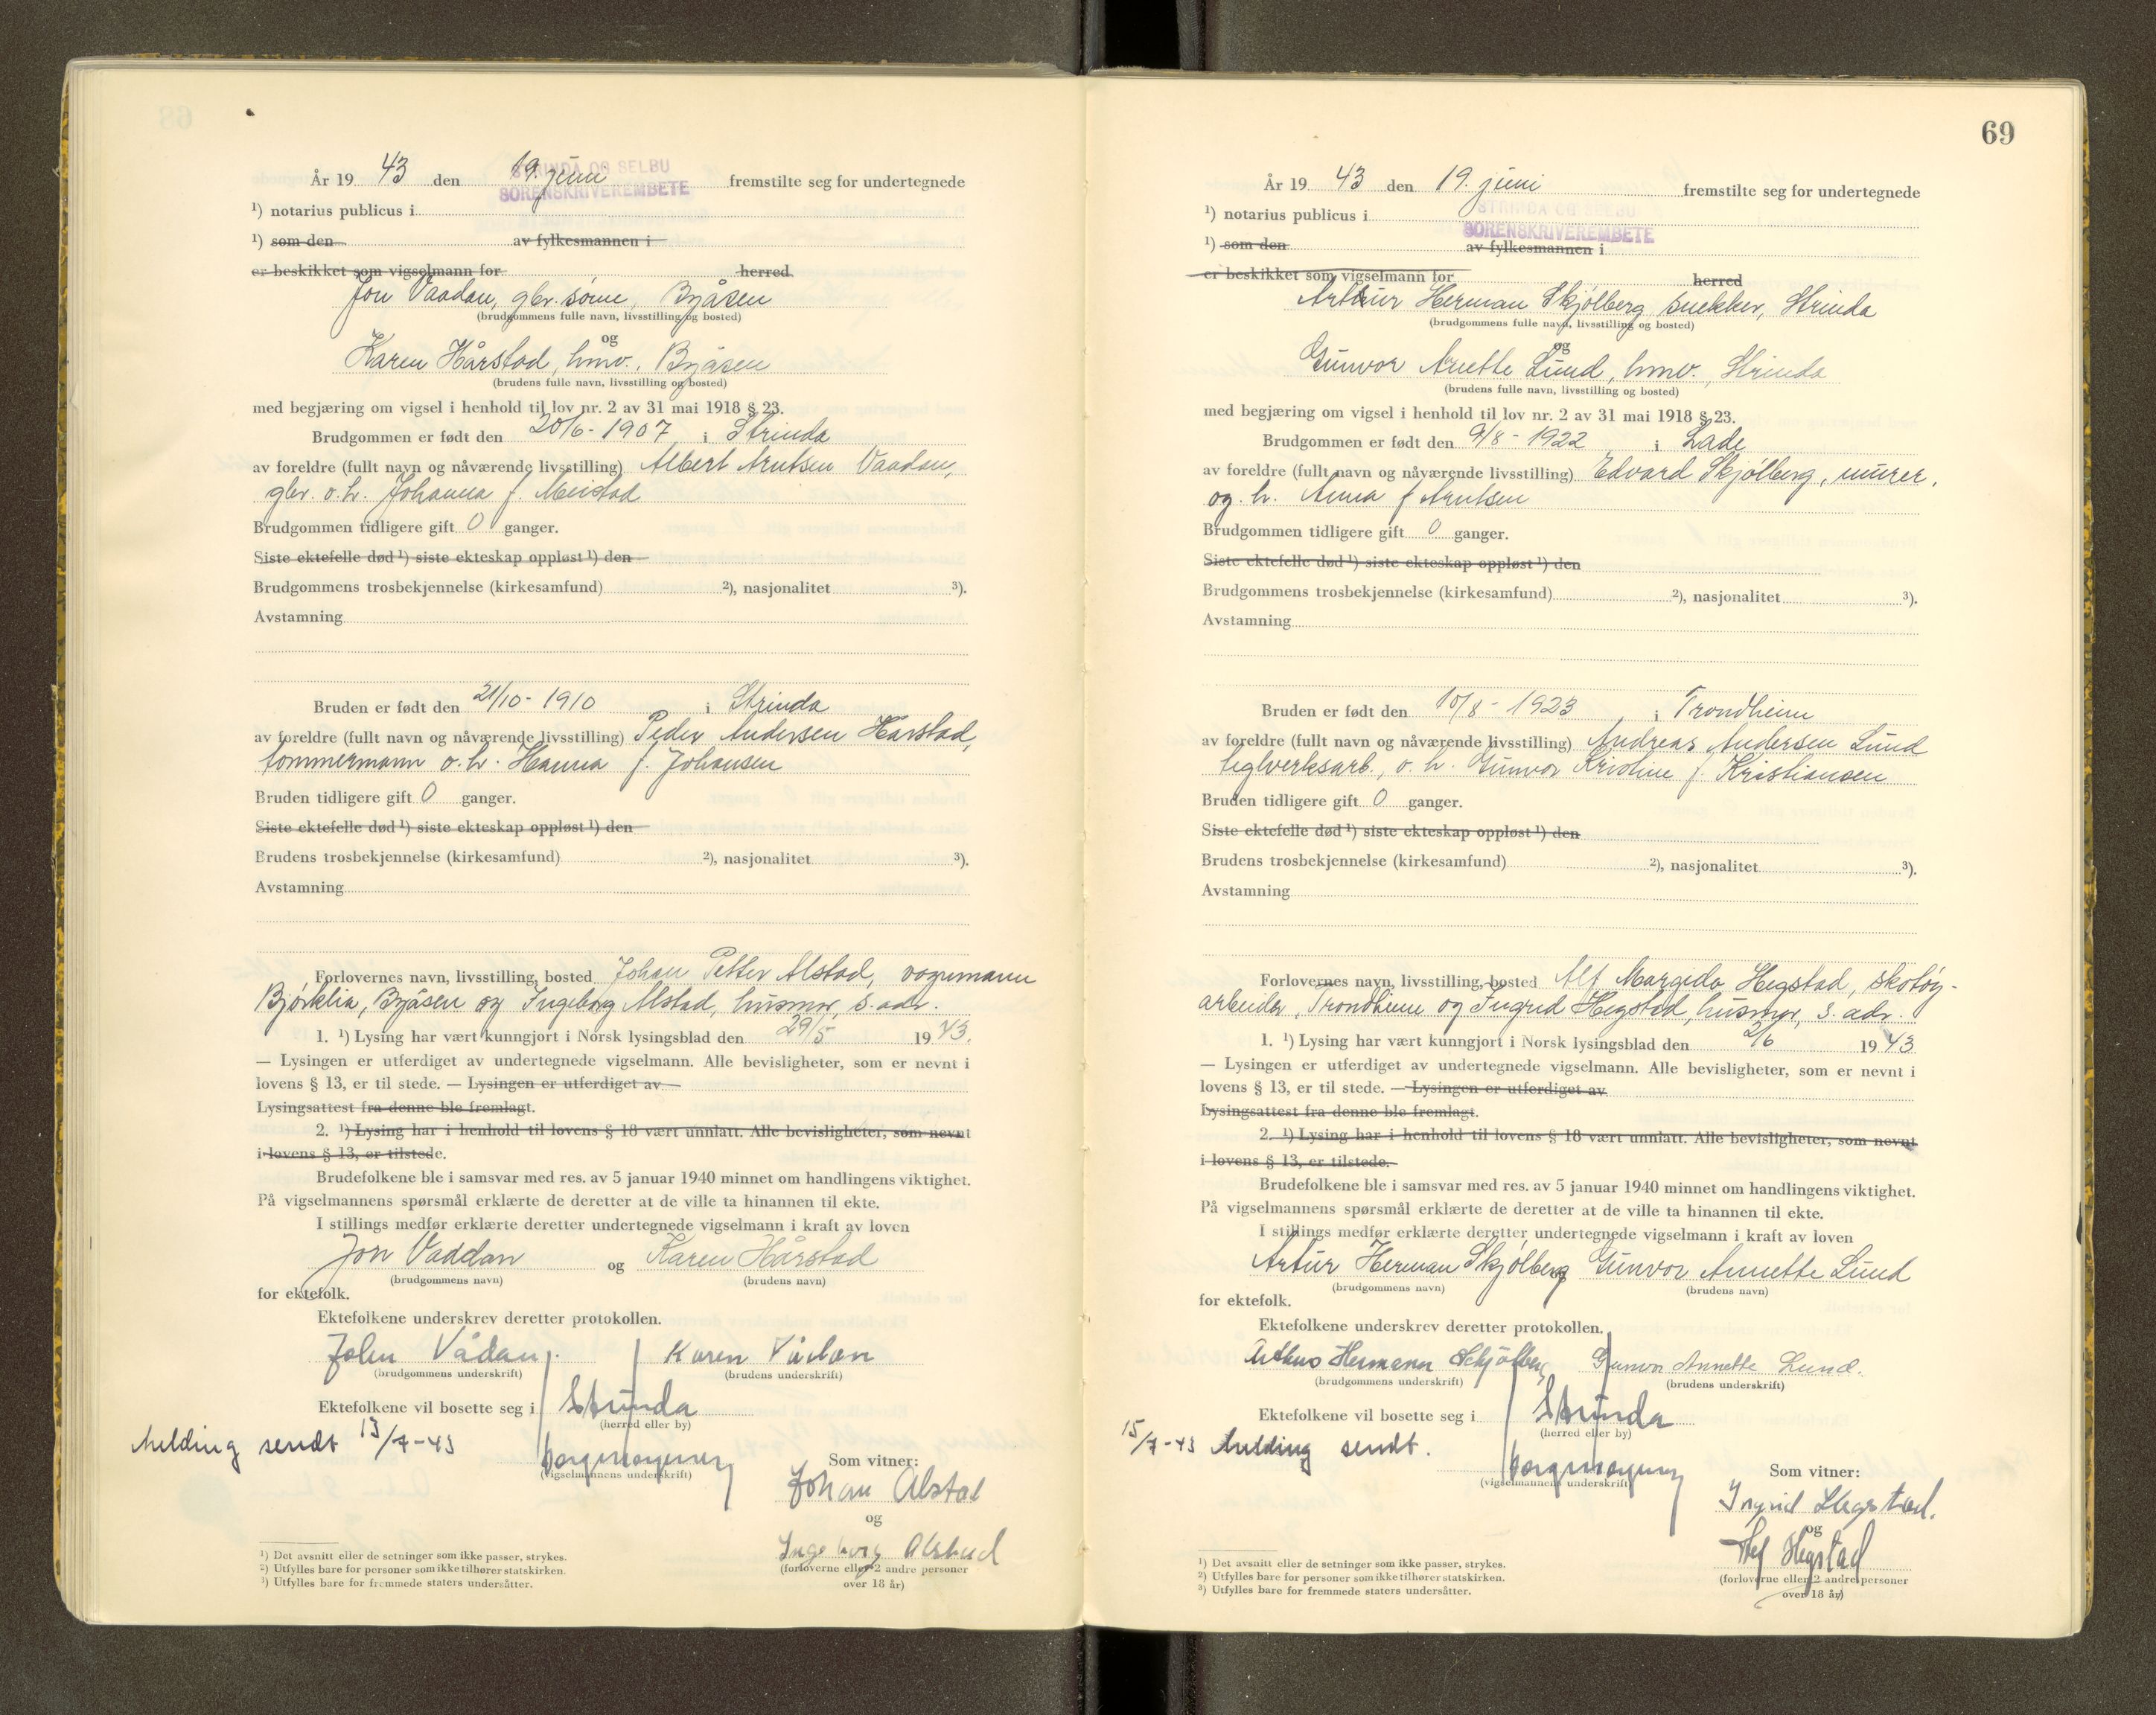 År 19 43 den 19. juni fremstilte seg for undertegnede
STRINDA OG SELBU
SORENSKRIVEREMBETE
¹) notarius publicus i
¹) som den av fylkesmannen i
er beskikket som vigselmann for herred
Jon Vaadan, gbr. sønn, Byåsen
(brudgommens fulle navn, livsstilling og bosted)
og
Karen Hårstad, hmv., Byåsen
(brudens fulle navn, livsstilling og bosted)
med begjæring om vigsel i henhold til lov nr. 2 av 31 mai 1918 § 23.
Brudgommen er født den 20/6 - 1907 i Strinda
av foreldre (fullt navn og nåværende livsstilling) Albert Arntsen Vaadan,
gbr. o. h. Johanna f. Meistad
Brudgommen tidligere gift 0 ganger.
Siste ektefelle død ¹) siste ekteskap oppløst ¹) den
Brudgommens trosbekjennelse (kirkesamfund) ²), nasjonalitet ³).
Avstamning
Bruden er født den 21/10 - 1910 i Strinda
av foreldre (fullt navn og nåværende livsstilling) Peder Andersen Hårstad,
tømmermann o. h. Hanna f. Johansen
Bruden tidligere gift 0 ganger.
Siste ektefelle død ¹) siste ekteskap oppløst ¹) den
Brudens trosbekjennelse (kirkesamfund) ²), nasjonalitet ³).
Avstamning
Forlovernes navn, livsstilling, bosted Johan Petter Alstad, vognmann
Bjørklia, Byåsen og Ingeborg Alstad, husmor, s. adr.
1. ¹) Lysing har vært kunngjort i Norsk lysingsblad den 29/5 19 43.
— Lysingen er utferdiget av undertegnede vigselmann. Alle bevisligheter, som er nevnt i
lovens § 13, er til stede. — Lysingen er utferdiget av
Lysingsattest fra denne ble fremlagt.
2. ¹) Lysing har i henhold til lovens § 18 vært unnlatt. Alle bevisligheter, som nevnt
i lovens § 13, er tilstede.
Brudefolkene ble i samsvar med res. av 5 januar 1940 minnet om handlingens viktighet.
På vigselmannens spørsmål erklærte de deretter at de ville ta hinannen til ekte.
I stillings medfør erklærte deretter undertegnede vigselmann i kraft av loven
Jon Vaddan og Karen Hårstad
(brudgommens navn) (brudens navn)
for ektefolk.
Ektefolkene underskrev deretter protokollen.
John Vådan. Karen Vådan
(brudgommens underskrift) (brudens underskrift)
Ektefolkene vil bosette seg i Strinda
(herred eller by)
Melding sendt 13/7-43
(vigselmannens underskrift)
Som vitner:
Johan Alstad
og
Ingeborg Alstad
(forloverne eller 2 andre personer
over 18 år)
¹) Det avsnitt eller de setninger som ikke passer, strykes.
²) Utfylles bare for personer som ikke tilhører statskirken.
³) Utfylles bare for fremmede staters undersåtter.
69
År 19 43 den 19. juni fremstilte seg for undertegnede
¹) notarius publicus i
STRINDA OG SELBU
SORENSKRIVEREMBETE
¹) som den av fylkesmannen i
er beskikket som vigselmann for herred
Arthur Herman Skjølberg snekker, Strinda
(brudgommens fulle navn, livsstilling og bosted)
og
Gunvor Anette Lund, hmv., Strinda
(brudens fulle navn, livsstilling og bosted)
med begjæring om vigsel i henhold til lov nr. 2 av 31 mai 1918 § 23.
Brudgommen er født den 9/8 - 1922 i Lade
av foreldre (fullt navn og nåværende livsstilling) Edvard Skjølberg, murer,
og. h. Anna f Arntsen
Brudgommen tidligere gift 0 ganger.
Siste ektefelle død ¹) siste ekteskap oppløst ¹) den
Brudgommens trosbekjennelse (kirkesamfund) ²), nasjonalitet ³).
Avstamning
Bruden er født den 10/8 - 1923 i Trondheim
av foreldre (fullt navn og nåværende livsstilling) Andreas Andersen Lund
teglverksarb., o. h. Gunvor Kristine f. Kristiansen
Bruden tidligere gift 0 ganger.
Siste ektefelle død ¹) siste ekteskap oppløst ¹) den
Brudens trosbekjennelse (kirkesamfund) ²), nasjonalitet ³).
Avstamning
Forlovernes navn, livsstilling, bosted Alf Margido Hegstad, skotøy-
arbeider, Trondheim og Ingrid Hegstad, husmor, s. adr.
1. ¹) Lysing har vært kunngjort i Norsk lysingsblad den 2/6 19 43
— Lysingen er utferdiget av undertegnede vigselmann. Alle bevisligheter, som er nevnt i
lovens § 13, er til stede. — Lysingen er utferdiget av
Lysingsattest fra denne ble fremlagt.
2. ¹) Lysing har i henhold til lovens § 18 vært unnlatt. Alle bevisligheter, som nevnt
i lovens § 13, er tilstede.
Brudefolkene ble i samsvar med res. av 5 januar 1940 minnet om handlingens viktighet.
På vigselmannens spørsmål erklærte de deretter at de ville ta hinannen til ekte.
I stillings medfør erklærte deretter undertegnede vigselmann i kraft av loven
Artur Herman Skjølberg Gunvor Annette Lund
(brudgommens navn) (brudens navn)
for ektefolk.
Ektefolkene underskrev deretter protokollen.
Arthur Hermann Skjølberg Gunvor Annette Lund.
(brudgommens underskrift) (brudens underskrift)
Ektefolkene vil bosette seg i Strinda
(herred eller by)
15/7-43 Melding sendt.
(vigselmannens underskrift)
Som vitner:
Ingrid Hegstad.
og
Alf Hegstad
(forloverne eller 2 andre personer
over 18 år)
¹) Det avsnitt eller de setninger som ikke passer, strykes.
²) Utfylles bare for personer som ikke tilhører statskirken.
³) Utfylles bare for fremmede staters undersåtter.